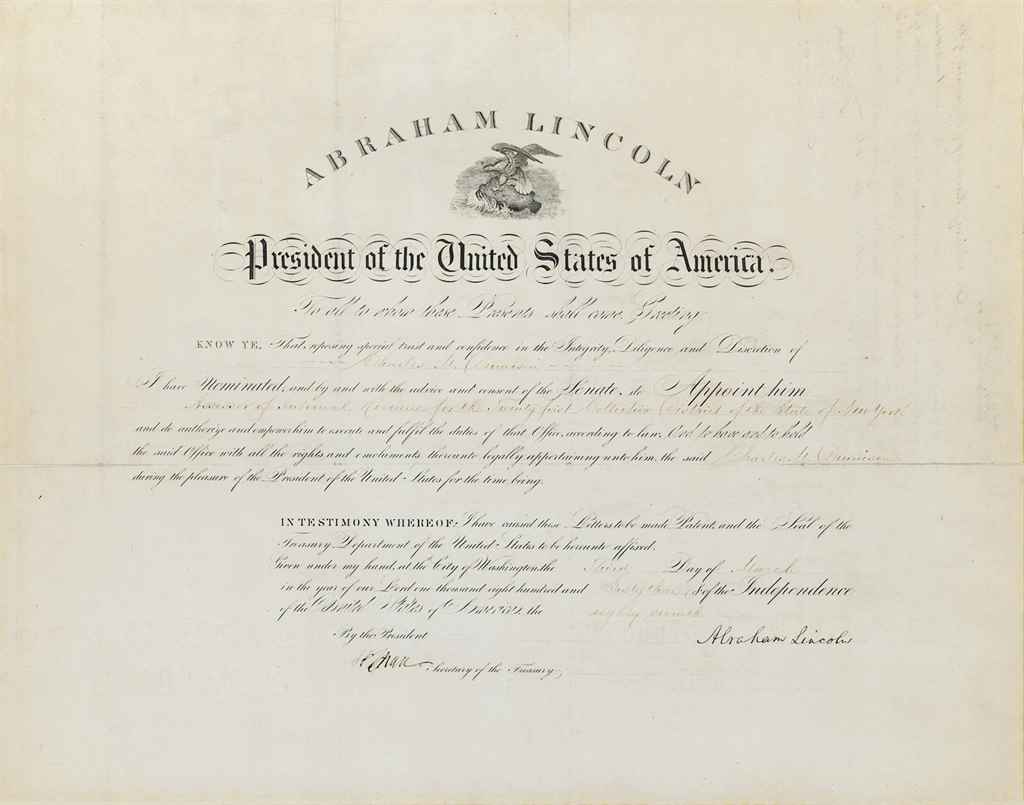 ABRAHAM LINCOLN
President of the United States of America.
To all to whom these Presents shall come, Greeting
KNOW YE, That, reposing special trust and confidence in the Integrity, Diligence and Discretion of
Charles M. Dennison
I have Nominated, and by and with the advice and consent of the Senate, do Appoint him
Assessor of Internal Revenue for the Twenty first Collection District of the State of New York
and do authorize and empower him to execute and fulfil the duties of that Office, according to law, And to have and to hold
the said Office with all the rights and emoluments thereunto legally appertaining unto him, the said Charles M. Dennison
during the pleasure of the President of the United States for the time being.
IN TESTIMONY WHEREOF, I have caused these Letters to be made Patent, and the Seal of the
Treasury Department of the United States to be hereunto affixed.
Given under my hand, at the City of Washington, the Third Day of March
in the year of our Lord one thousand eight hundred and Sixty three & of the Independence
of the United States of America, the eighty seventh
By the President Abraham Lincoln
SP Chase Secretary of the Treasury